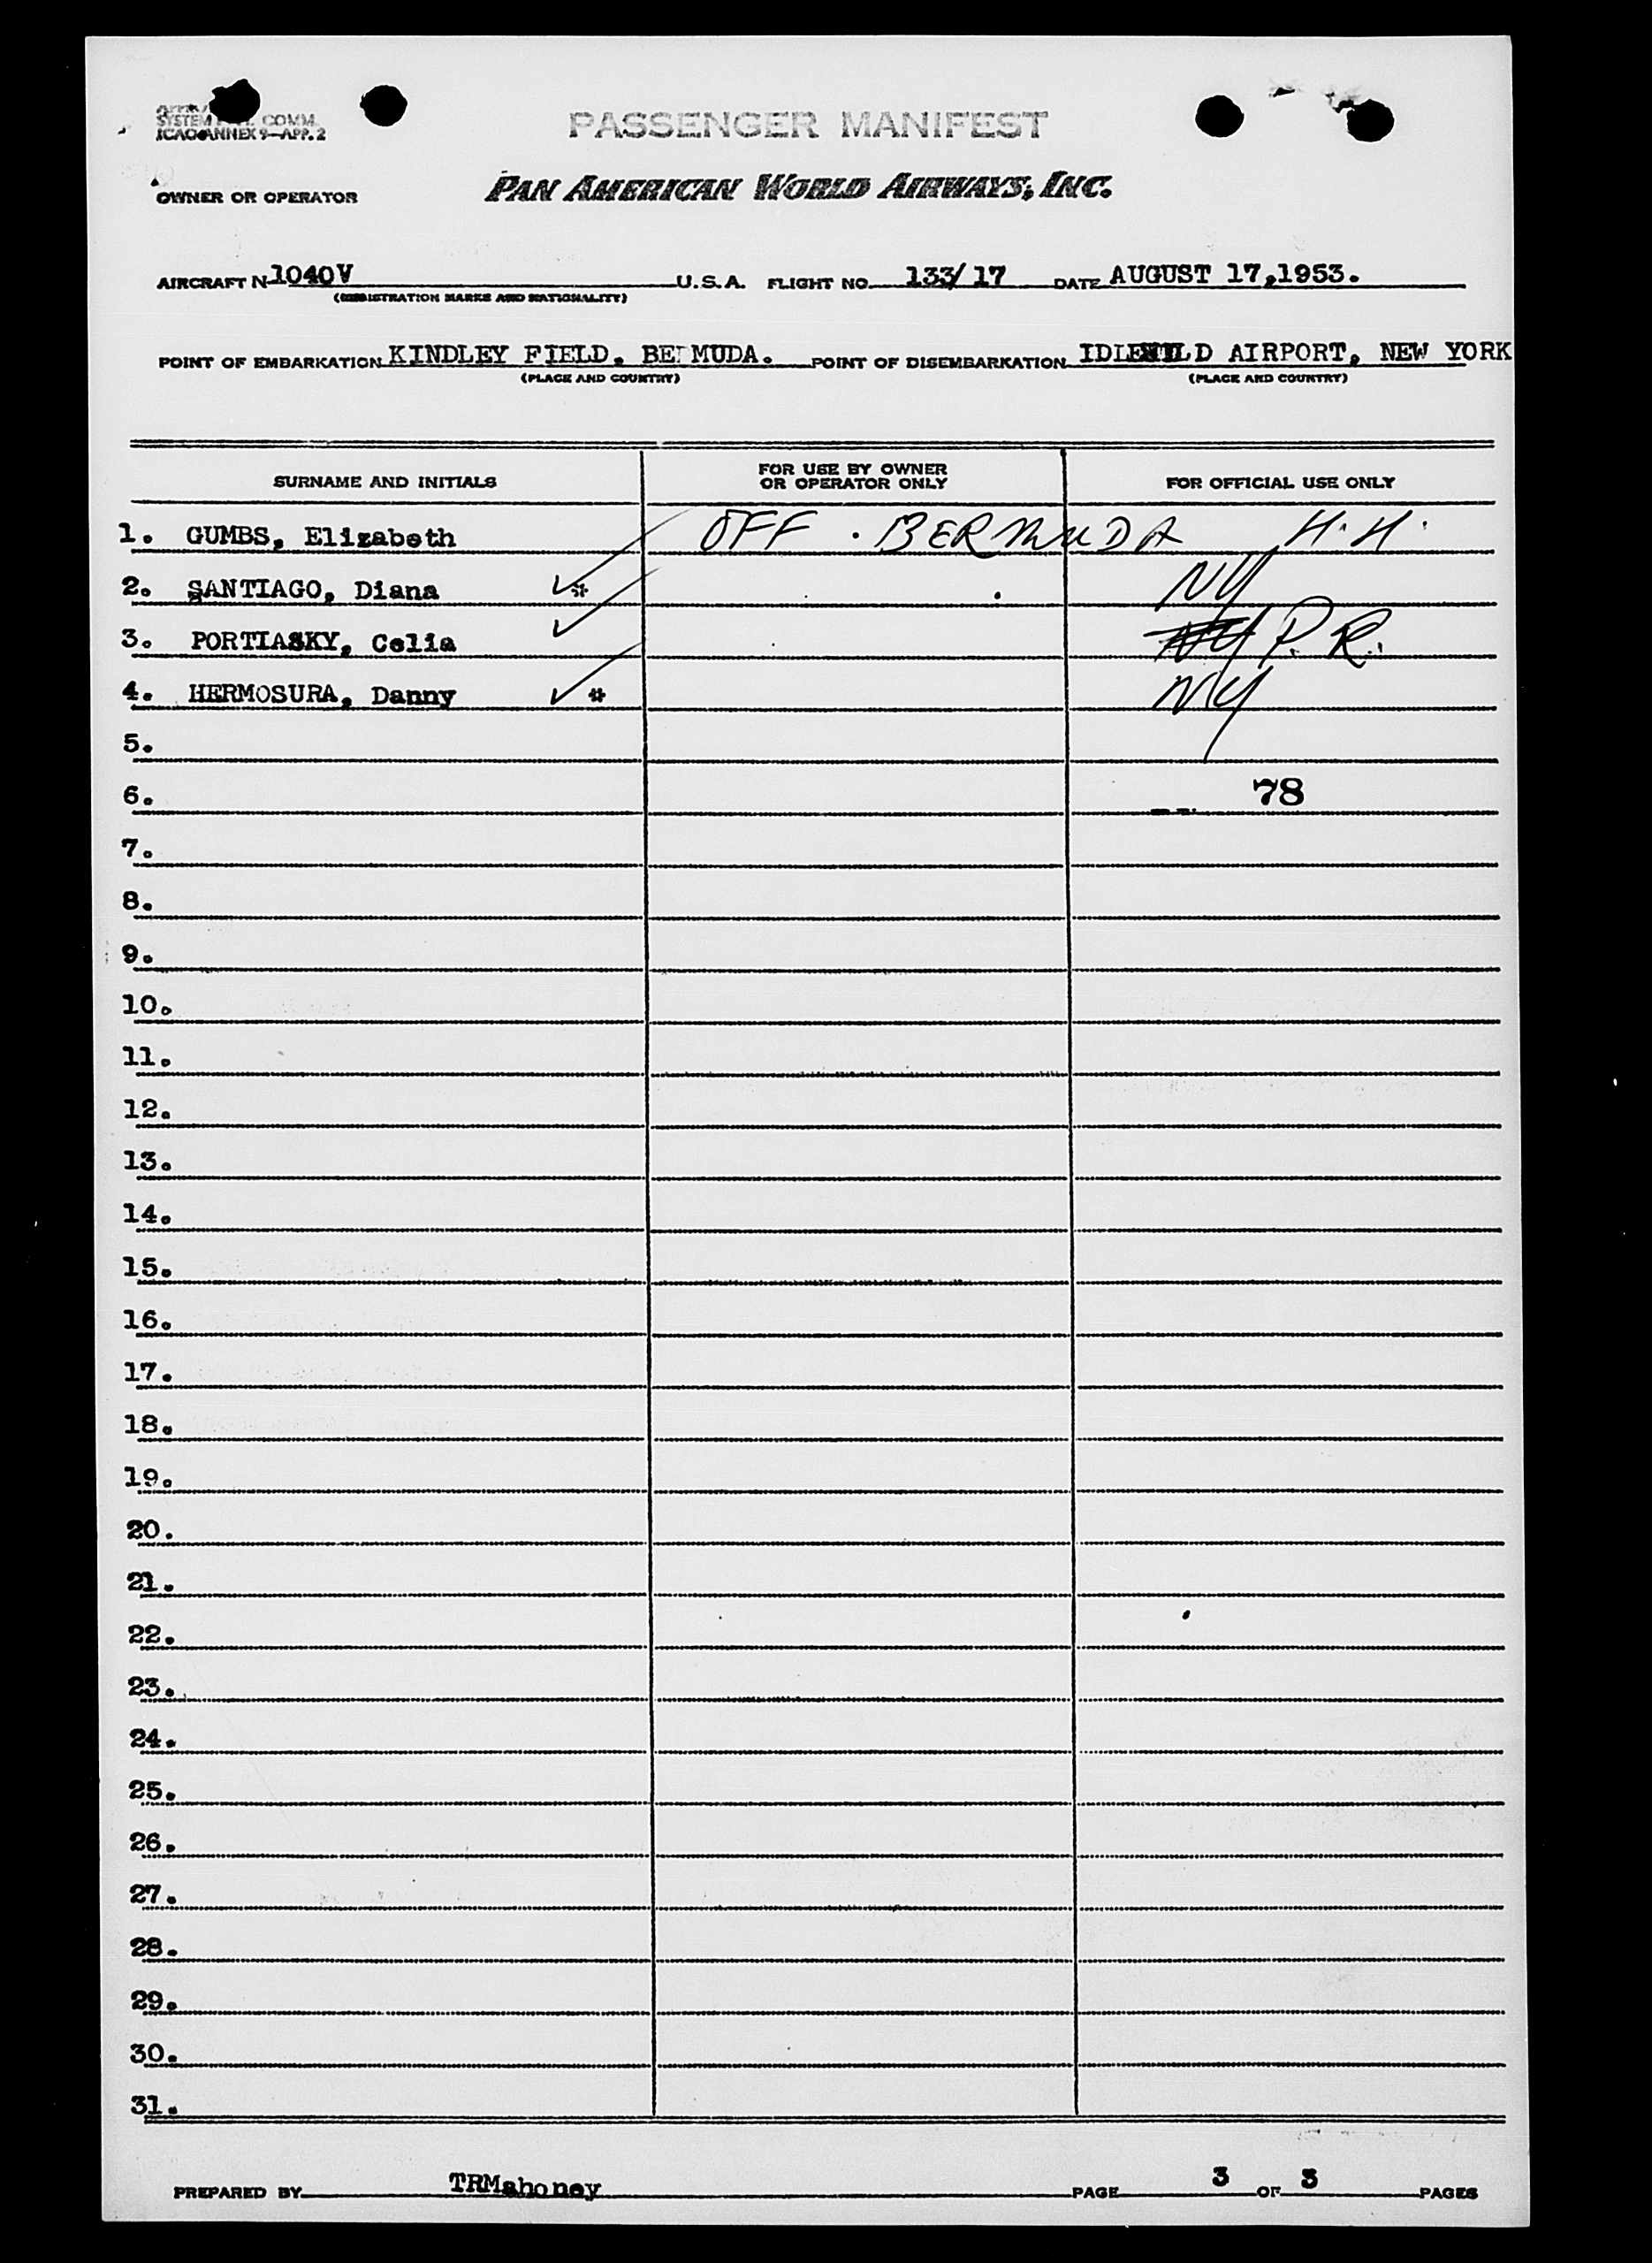 SYSTEM COMM.
ICAO ANNEX 9—APP. 2
PASSENGER MANIFEST
OWNER OR OPERATOR PAN AMERICAN WORLD AIRWAYS, INC.
AIRCRAFT N 1040V U.S.A. FLIGHT NO. 133/17 DATE AUGUST 17,1953.
(REGISTRATION MARKS AND NATIONALITY)
POINT OF EMBARKATION KINDLEY FIELD, BERMUDA. POINT OF DISEMBARKATION IDLEWILD AIRPORT, NEW YORK
(PLACE AND COUNTRY) (PLACE AND COUNTRY)
SURNAME AND INITIALS FOR USE BY OWNER OR OPERATOR ONLY FOR OFFICIAL USE ONLY
1. GUMBS, Elizabeth OFF . BERMUDA H.H.
2. SANTIAGO, Diana ✓* NY
3. PORTIASKY, Celia ✓ NY P.R.
4. HERMOSURA, Danny ✓ # NY
5.
6. 78
7.
8.
9.
10.
11.
12.
13.
14.
15.
16.
17.
18.
19.
20.
21.
22.
23.
24.
25.
26.
27.
28.
29.
30.
31.
PREPARED BY TRMahoney PAGE 3 OF 3 PAGES